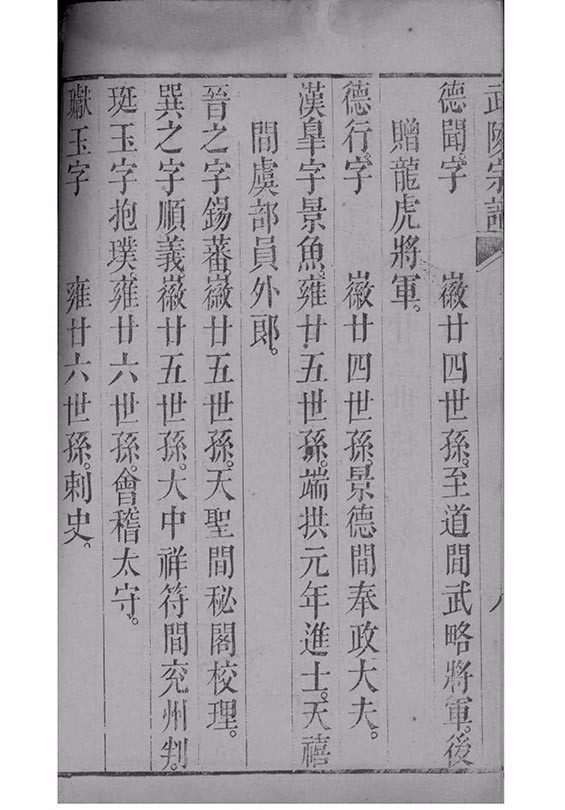 武陵宗譜
德聞字　徽廿四世孫。至道間武略將軍。後
贈龍虎將軍。
德行字　徽廿四世孫景德間奉政大夫。
漢臯字景魚。雍廿五世孫。端拱元年進士。天禧
間虞部員外郎。
晉之字錫蕃。徽廿五世孫。天聖間秘閣校理。
巽之字順義。徽廿五世孫。大中祥符間兖州判。
珽玉字抱璞雍廿六世孫。會稽太守。
瓛玉字　雍廿六世孫。刺史。